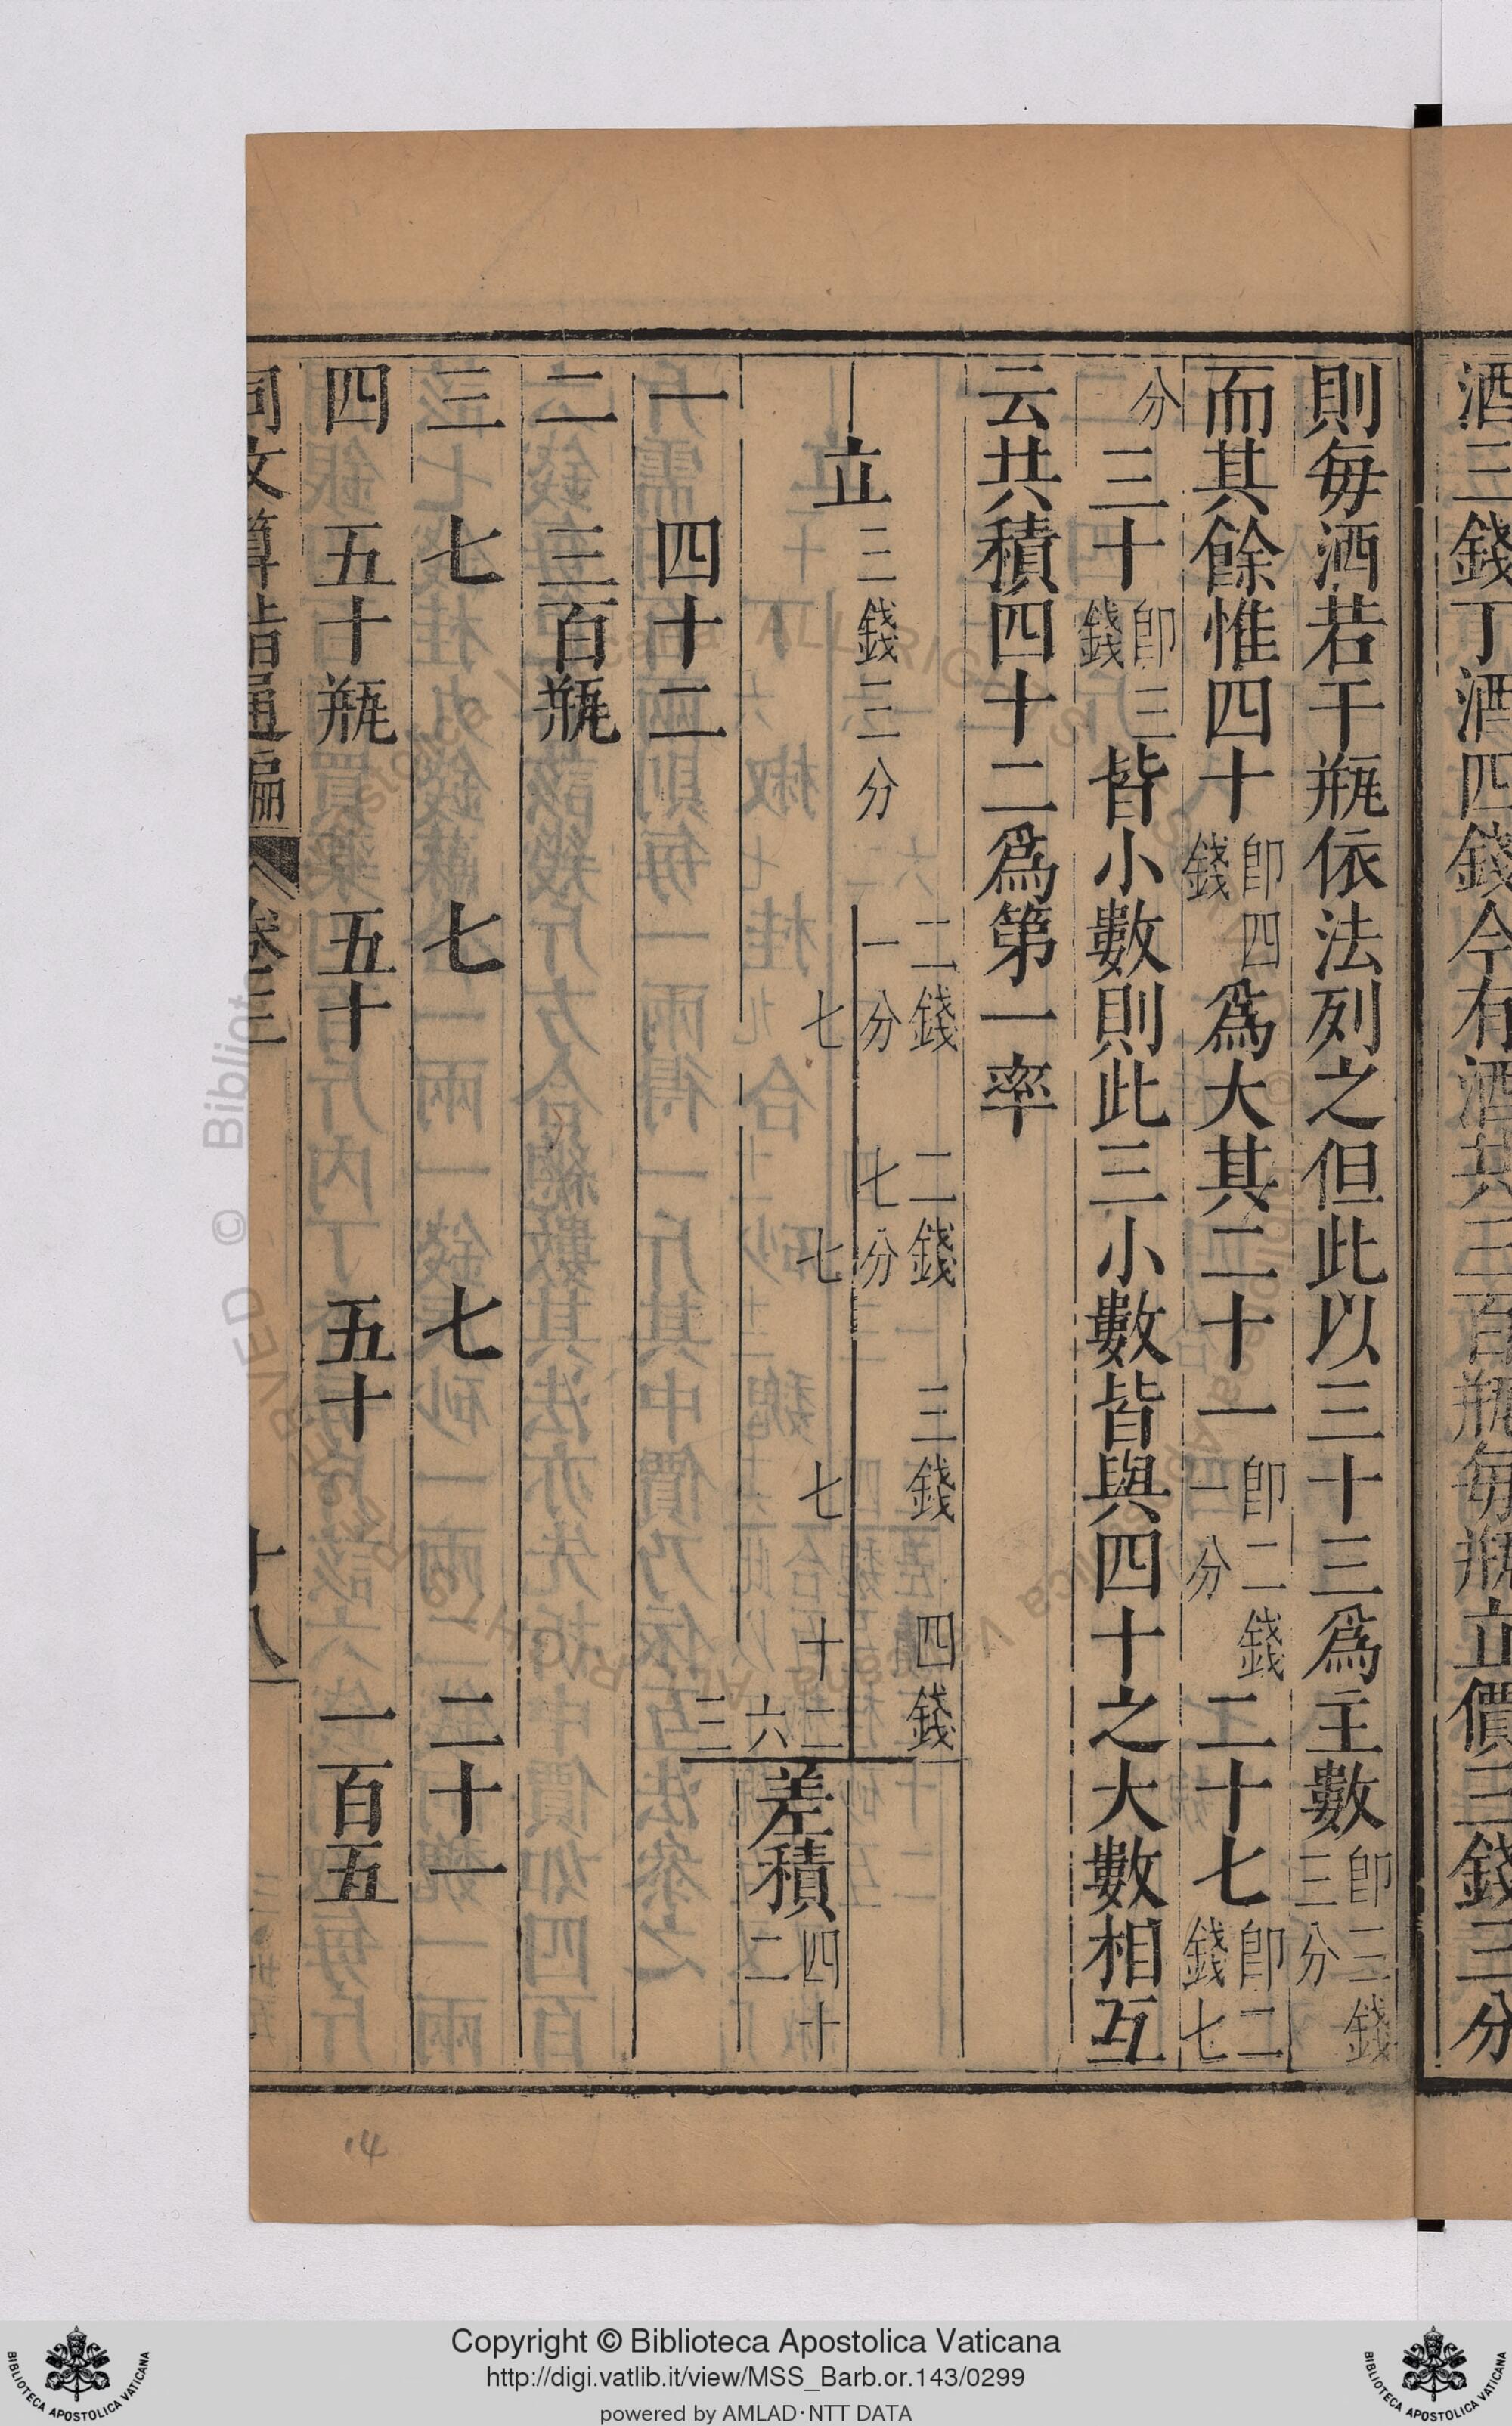 酒三錢丁酒四錢今有酒共三百瓶每瓶立價三錢三分
則每酒若干瓶依法列之但此以三十三爲主數卽三錢三分
而其餘惟四十卽四錢爲大其二十一卽二錢一分二十七卽二錢七
分三十卽三錢皆小數則此三小數皆與四十之大數相互
云共積四十二爲第一率
二錢一分 二錢七分 三錢 四錢
立三錢三分
七 七 七 十二六三 差積四十二
一 四十二
二 三百瓶
三 七 七 七 二十一
四 五十瓶 五十 五十 一百五
同文算指通編 卷三 十八
14
© Bibliot
Copyright © Biblioteca Apostolica Vaticana
http://digi.vatlib.it/view/MSS_Barb.or.143/0299
powered by AMLAD·NTT DATA
BIBLIOTECA APOSTOLICA VATICANA
BIBLIOTECA APOSTOLICA VATICANA